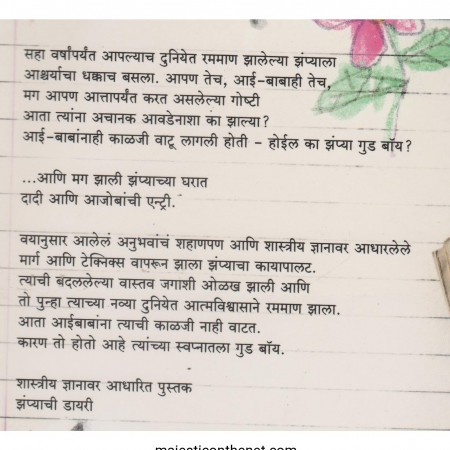 सहा वर्षांपर्यंत आपल्याच दुनियेत रममाण झालेल्या झंप्याला
आश्चर्याचा धक्काच बसला. आपण तेच, आई-बाबाही तेच,
मग आपण आत्तापर्यंत करत असलेल्या गोष्टी
आता त्यांना अचानक आवडेनाशा का झाल्या?
आई-बाबांनाही काळजी वाटू लागली होती - होईल का झंप्या गुड बॉय?
...आणि मग झाली झंप्याच्या घरात
दादी आणि आजोबांची एन्ट्री.
वयानुसार आलेलं अनुभवांचं शहाणपण आणि शास्त्रीय ज्ञानावर आधारलेले
मार्ग आणि टेक्निक्स वापरून झाला झंप्याचा कायापालट.
त्याची बदललेल्या वास्तव जगाशी ओळख झाली आणि
तो पुन्हा त्याच्या नव्या दुनियेत आत्मविश्वासाने रममाण झाला.
आता आईबाबांना त्याची काळजी नाही वाटत.
कारण तो होतो आहे त्यांच्या स्वप्नातला गुड बॉय.
शास्त्रीय ज्ञानावर आधारित पुस्तक
झंप्याची डायरी